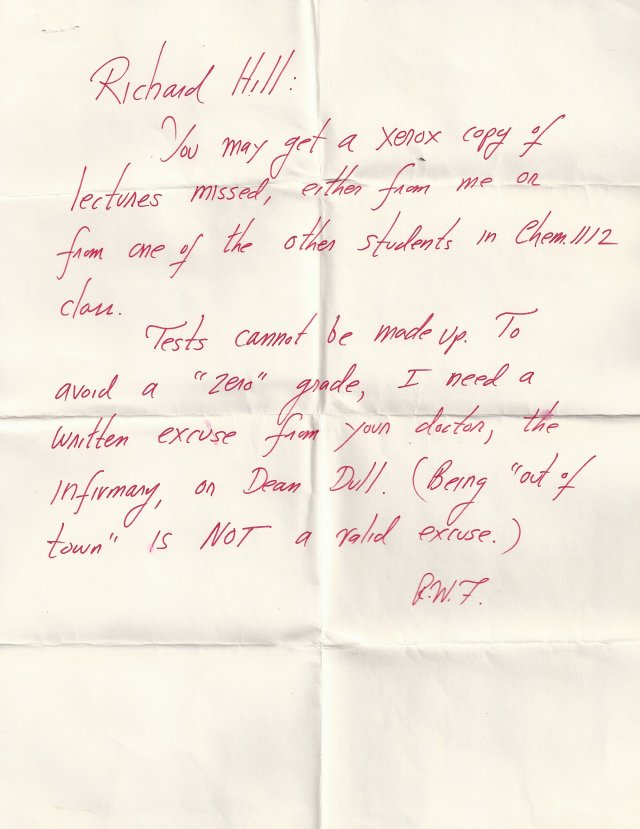 Richard Hill:
You may get a xerox copy of
lectures missed, either from me or
from one of the other students in Chem. 1112
class.
Tests cannot be made up. To
avoid a "zero" grade, I need a
written excuse from your doctor, the
infirmary, or Dean Dull. (Being "out of
town" is NOT a valid excuse.)
R.W.F.